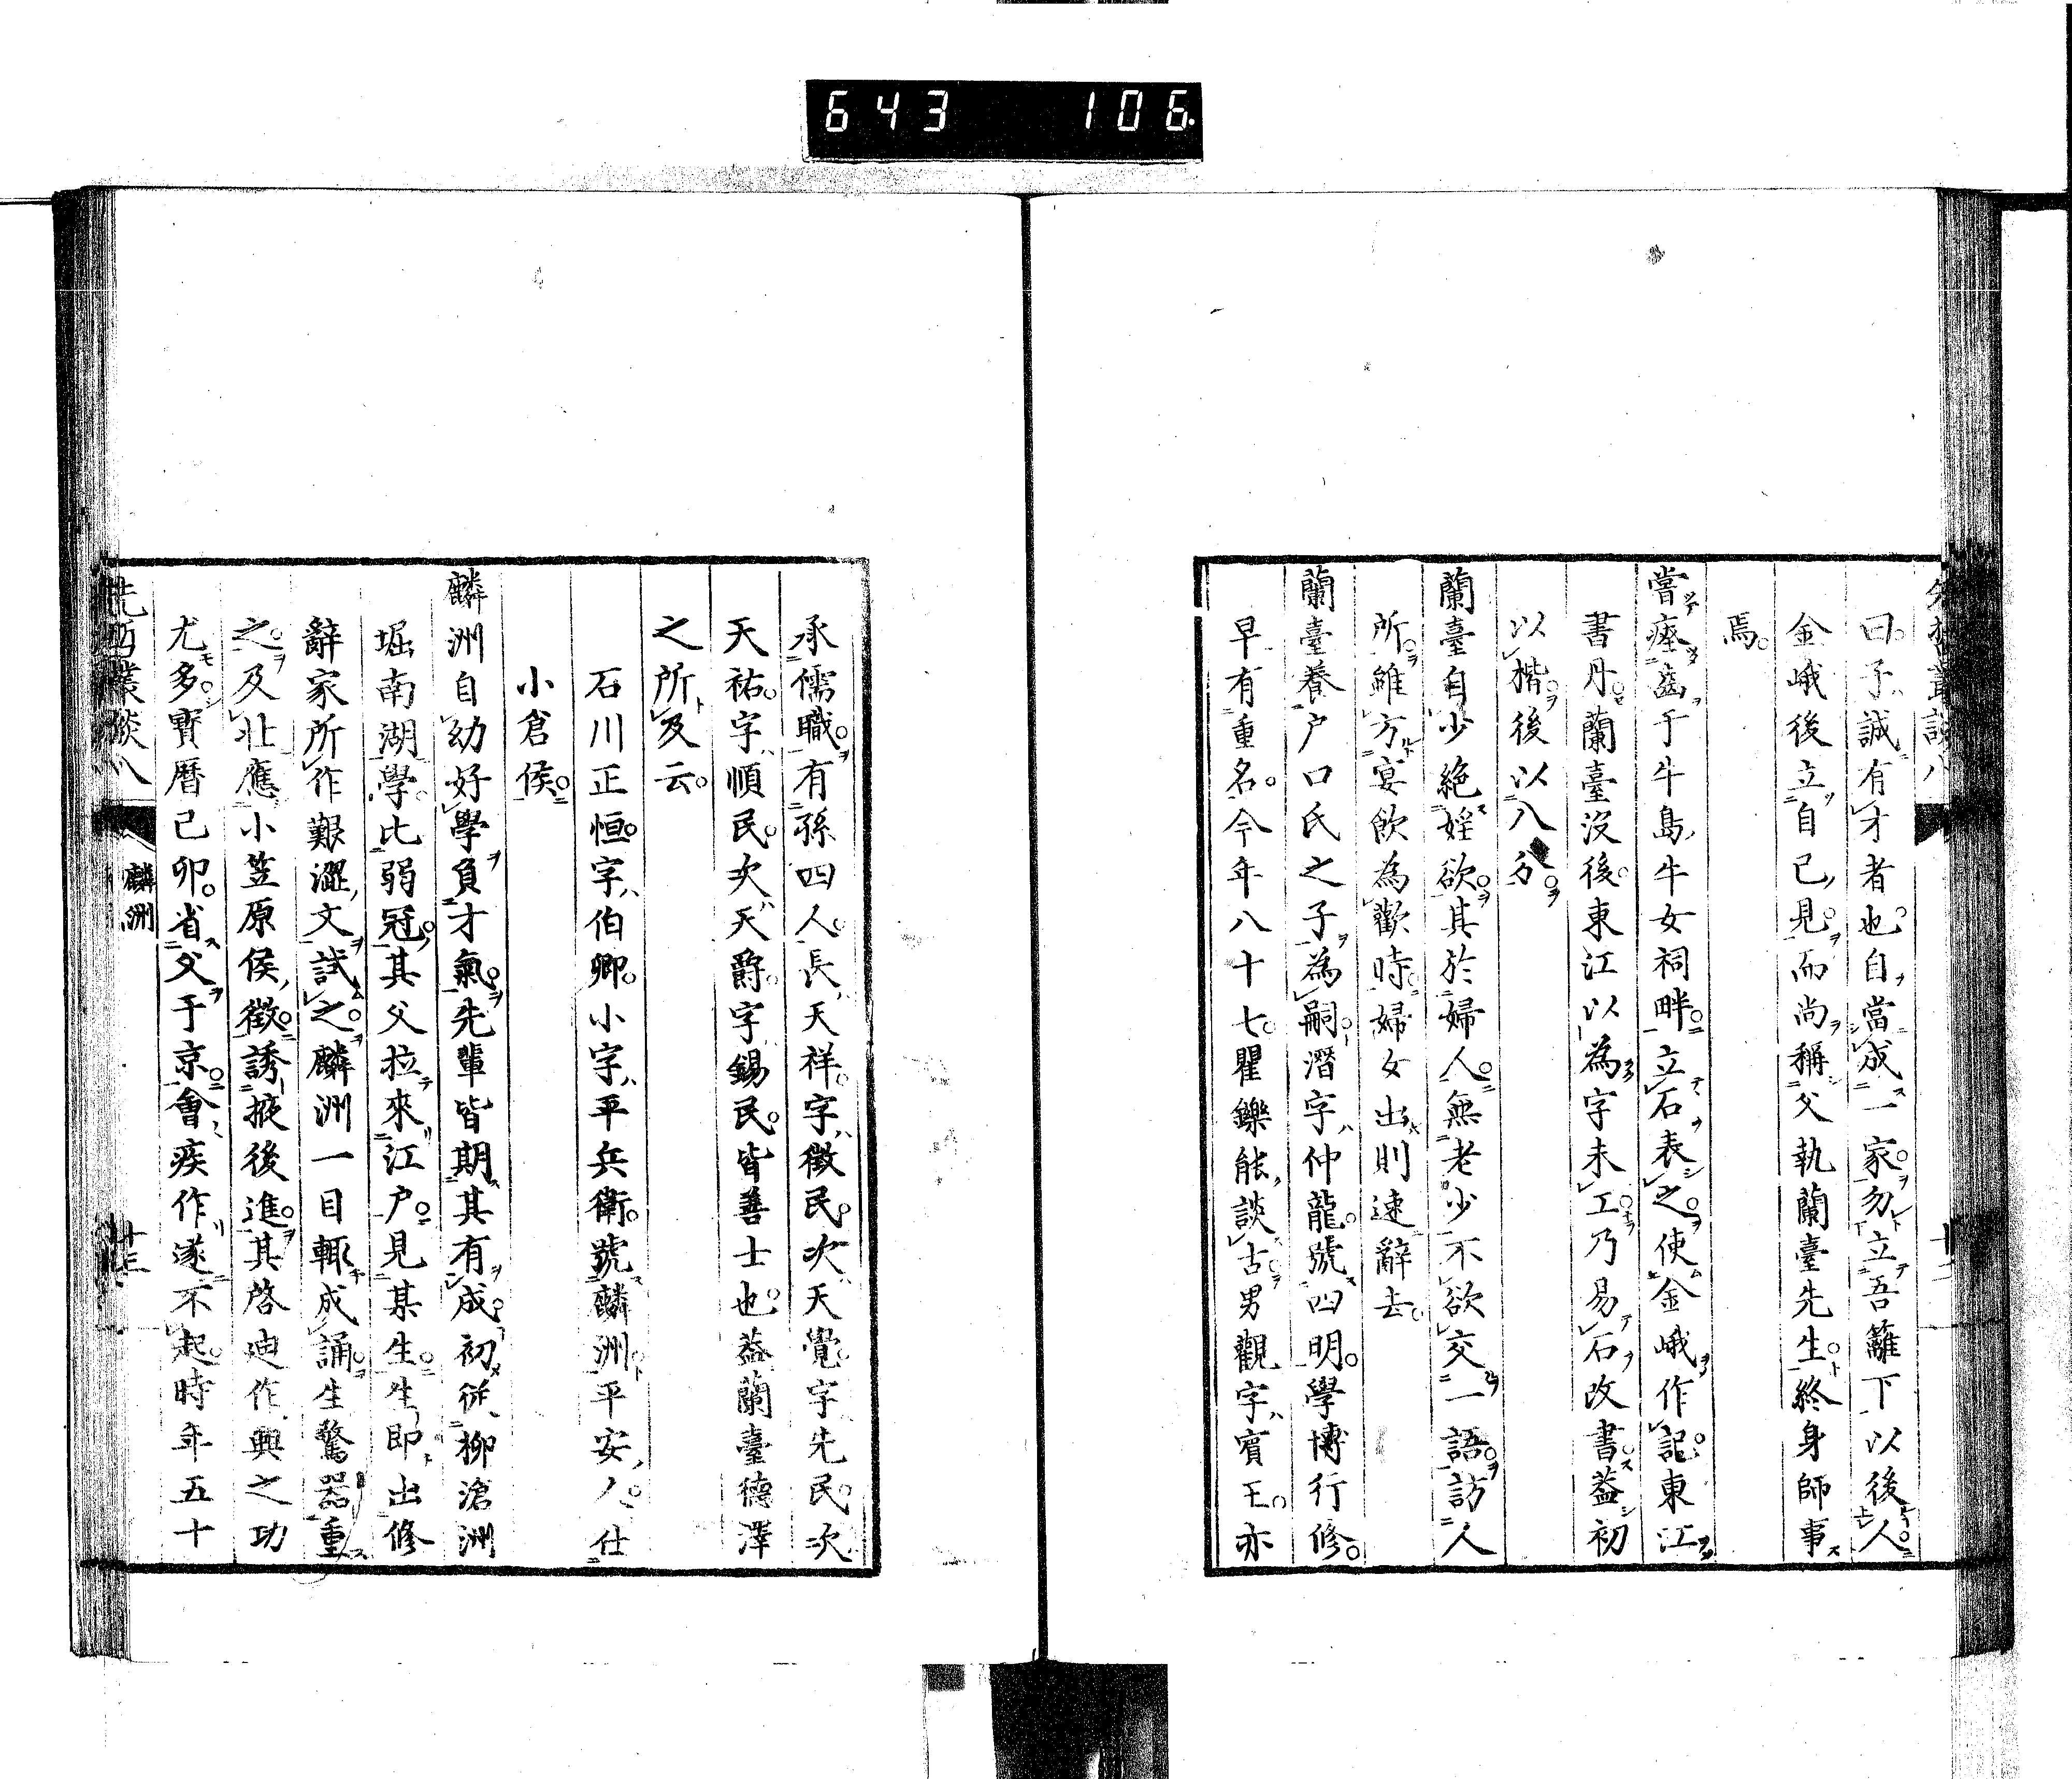 643 106
曰子誠有才者也自當成一家勿立吾籬下以後人
金峨後立自己見而尚稱父執蘭臺先生終身師事
焉
嘗瘞齒于牛島牛女祠畔立石表之使金峨作記東江
書丹蘭臺沒後東江以為字未工乃易石改書蓋初
以楷後以八分
蘭臺自少絶婬欲其於婦人無老少不欲交一語訪人
所雖方宴飲為歡時婦女出則速辭去
蘭臺養戸口氏之子為嗣潛字仲龍號四明學博行修
早有重名今年八十七矍鑠能談古男觀字賓王亦
承儒職有孫四人長天祥字徵民次天覺字先民次
天祐字順民次天爵字錫民皆善士也蓋蘭臺德澤
之所及云
石川正恒字伯卿小字平兵衛號麟洲平安人仕
小倉侯
麟洲自幼好學負才氣先輩皆期其有成初從柳滄洲
堀南湖學比弱冠其父拉來江戸見某生生即出修
辭家所作艱澀文試之麟洲一目輒成誦生驚器重
之及壯應小笠原侯徵誘掖後進其啓迪作興之功
尤多寶曆己卯省父于京會疾作遂不起時年五十
先哲叢談八
麟洲
十三